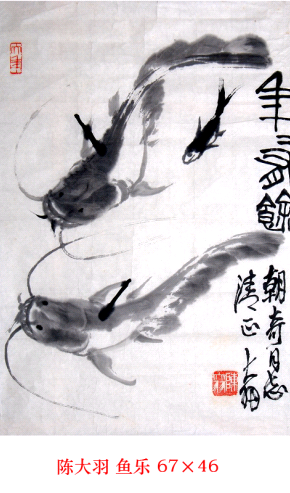 年有餘
朝奇同志
清正 大羽
陈大羽 鱼乐 67×46